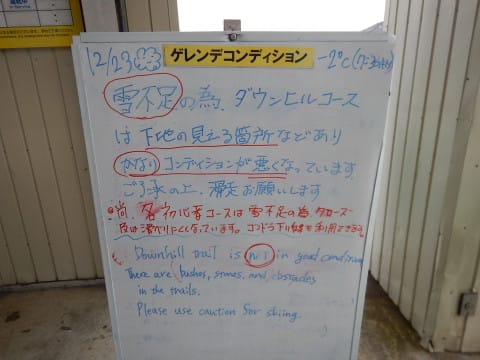 12/23 ゲレンデコンディション -2℃
雪不足の為、ダウンヒルコース
は下地の見える箇所などあり
かなりコンディションが悪くなっています
ご了承の上、滑走お願いします
尚、各初心者コースは雪不足の為クローズ
又は滑りにくくなっています。ゴンドラ下り線も利用できます
Downhill trail is NOT in good condition
There are bushes, stones, and obstacles
in the trails.
Please use caution for skiing.